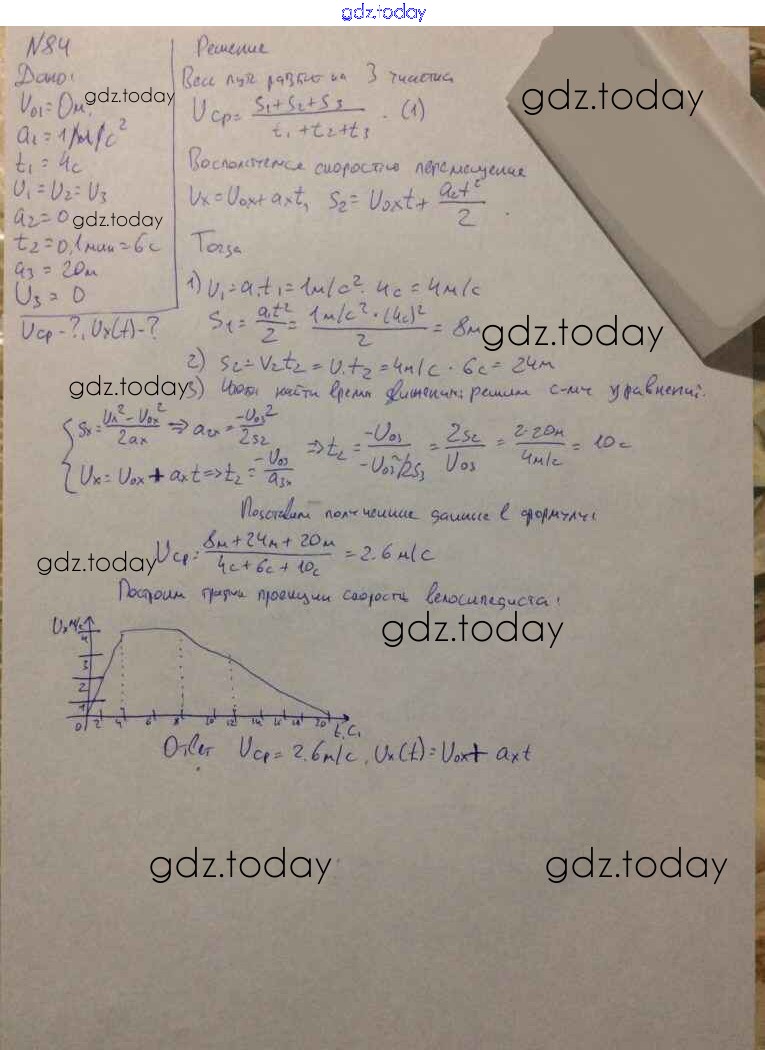 gdz.today
N84
Дано:
υ₀₁ = 0м
a₁ = 1м/с²
t₁ = 4с
υ₁ = υ₂ = υ₃
a₂ = 0
t₂ = 0,1мин = 6с
a₃ = 20м
υ₃ = 0
υср - ?, υx(t) - ?
Решение
Весь путь 3
υср = (s₁+s₂+s₃)/(t₁+t₂+t₃) . (1)
скоростью перемещения
υx = υ₀x + axt, s₂ = υ₀xt + a₂t²/2 .
Тогда
1) υ₁ = a₁t₁ = 1м/с² · 4с = 4м/с
s₁ = a₁t²/2 = 1м/с² · (4с)²/2 = 8м
2) s₂ = v₂t₂ = υ₁t₂ = 4м/с · 6с = 24м
3) найти время движения решим с-му уравнений.
{ sx = (υx² - υ₀x²)/2ax ⇒ a₂x = -υ₀₃²/2s₂
{ υx = υ₀x + axt ⇒ t₂ = -υ₀₃/a₃x
⇒ t₂ = -υ₀₃/(-υ₀₃²/2s₃) = 2s₂/υ₀₃ = 2·20м/4м/с = 10с
Подставим полученные данные в формулу:
υср = (8м + 24м + 20м)/(4с + 6с + 10с) = 2.6 м/с
Построим график проекции скорость велосипедиста:
υx м/с
4
3
2
1
0 2 4 6 8 10 12 14 16 18 20 t, c,
Ответ υср = 2.6м/с, υx(t) = υ₀x + axt
gdz.today
gdz.today
gdz.today
gdz.today
gdz.today
gdz.today
gdz.today
gdz.today
gdz.today